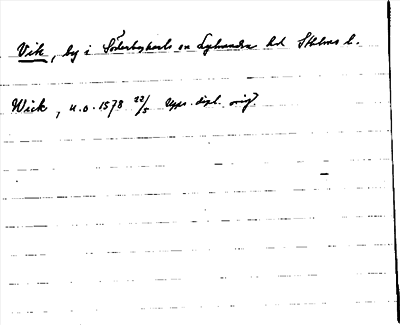 Vik, by i Söderbykarls sn Lyhundra hd Sthlms l.
Wiek, u.o. 1578 22/5 Upps. dipl. orig.